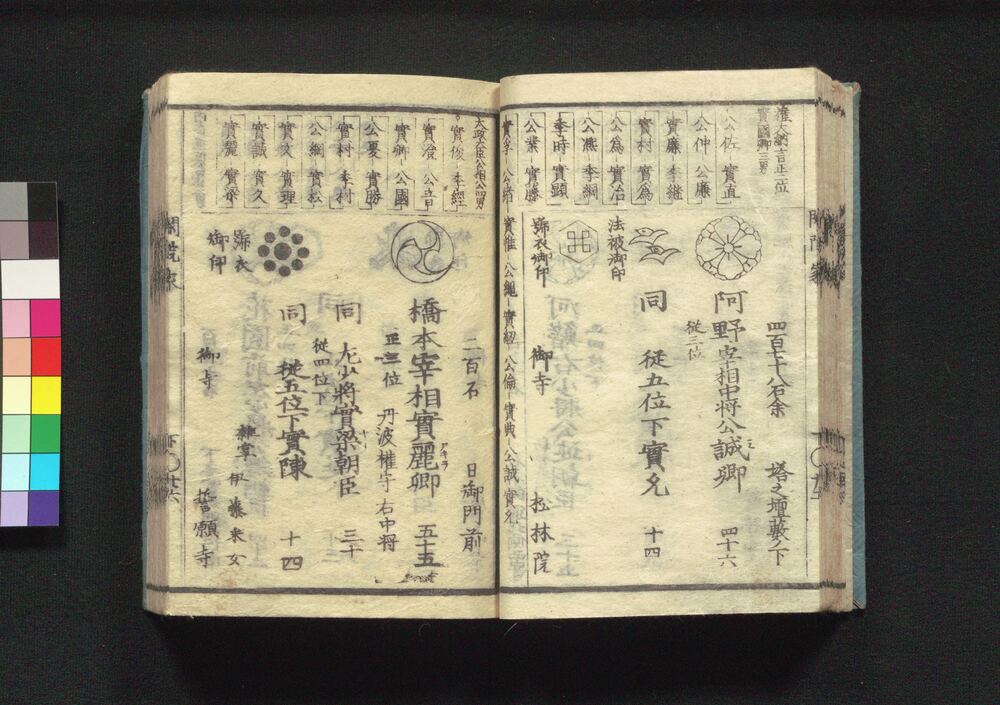 權大納言正二位
實國卿三男
公佐 實直
公仲 公廉
實廉 季継
實村 實為
公為 實治
公燕 季綱
季時 實顕
公業 實藤
四百七十八石余 塔之壇藪ノ下
阿野宰相中将公誠卿 四十六
従三位
同 従五位下實允 十四
法被御印
御寺 松林院
實惟 公縄 實紐 公倫 實典 公誠 實允
太政大臣公相公四男
實俊 季經
公音
實卿 公國
公夏 實勝
實村 季村
公綱 實松
實久 實理
實誠 實久
實麗 實梁
二百石 日御門前
橋本宰相實麗卿 五十五
アキラ
正三位 丹波權守 右中将
同 左少将實梁朝臣 三十
従四位下
同 従五位下實陳 十四
雑掌 伊藤釆女
御印
御寺 誓願寺